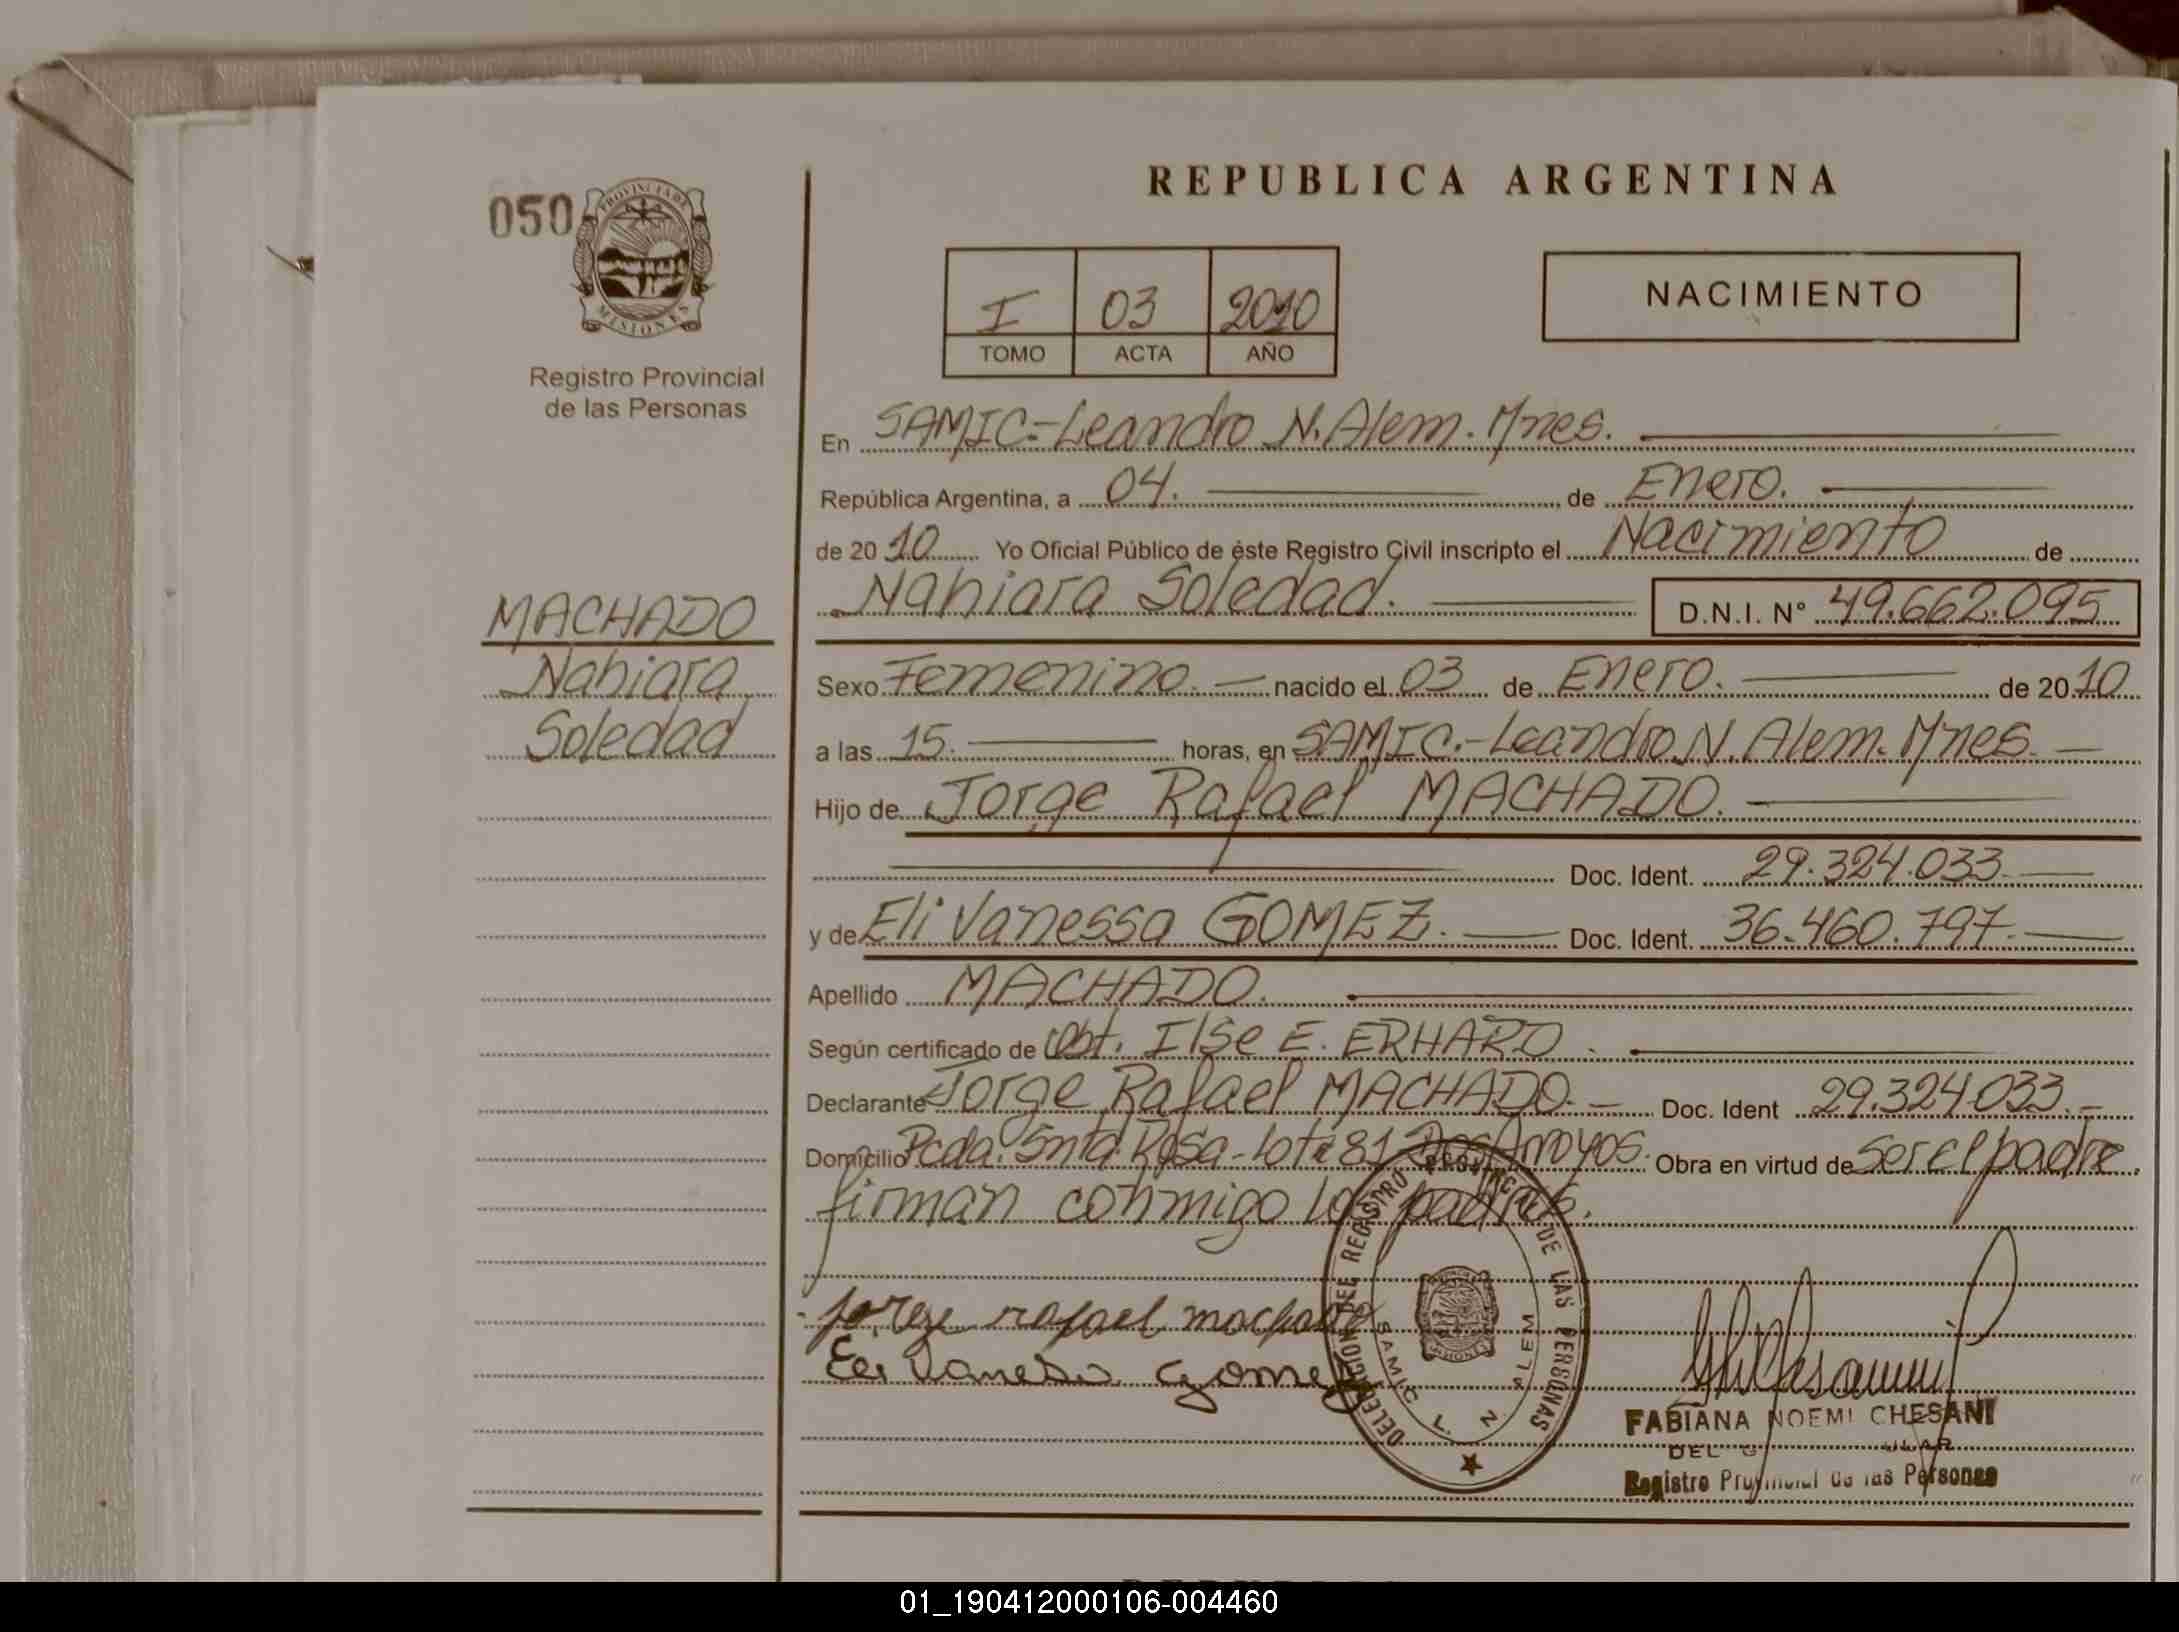 REPUBLICA ARGENTINA
050
PROVINCIA DE
MISIONES
Registro Provincial
de las Personas
I 03 2010
TOMO ACTA AÑO
NACIMIENTO
En SAMIC.-Leandro N. Alem. Mnes.
República Argentina, a 04. de Enero.
de 2010 Yo Oficial Público de éste Registro Civil inscripto el Nacimiento de
Nahiara Soledad. D.N.I. N° 49.662.095
MACHADO
Nahiara
Soledad
Sexo Femenino. nacido el 03 de Enero. de 2010
a las 15. horas, en SAMIC.-Leandro N. Alem. Mnes.
Hijo de Jorge Rafael MACHADO.
Doc. Ident. 29.324.033
y de Eli Vanessa GOMEZ. Doc. Ident. 36.460.797
Apellido MACHADO.
Según certificado de Obt. Ilse E. ERHARD.
Declarante Jorge Rafael MACHADO. Doc. Ident 29.324.033.
Domicilio Pcda. Snta. Rosa-lote 81 Dos Arroyos. Obra en virtud de ser el padre
firman conmigo los padres.
DELEGACION DEL REGISTRO PROVINCIAL DE LAS PERSONAS
SAMIC L. N. ALEM
MISIONES
jorge rafael machado
Eli Vanesa gomez
FABIANA NOEMI CHESANI
Registro Provincial de las Personas
01_190412000106-004460